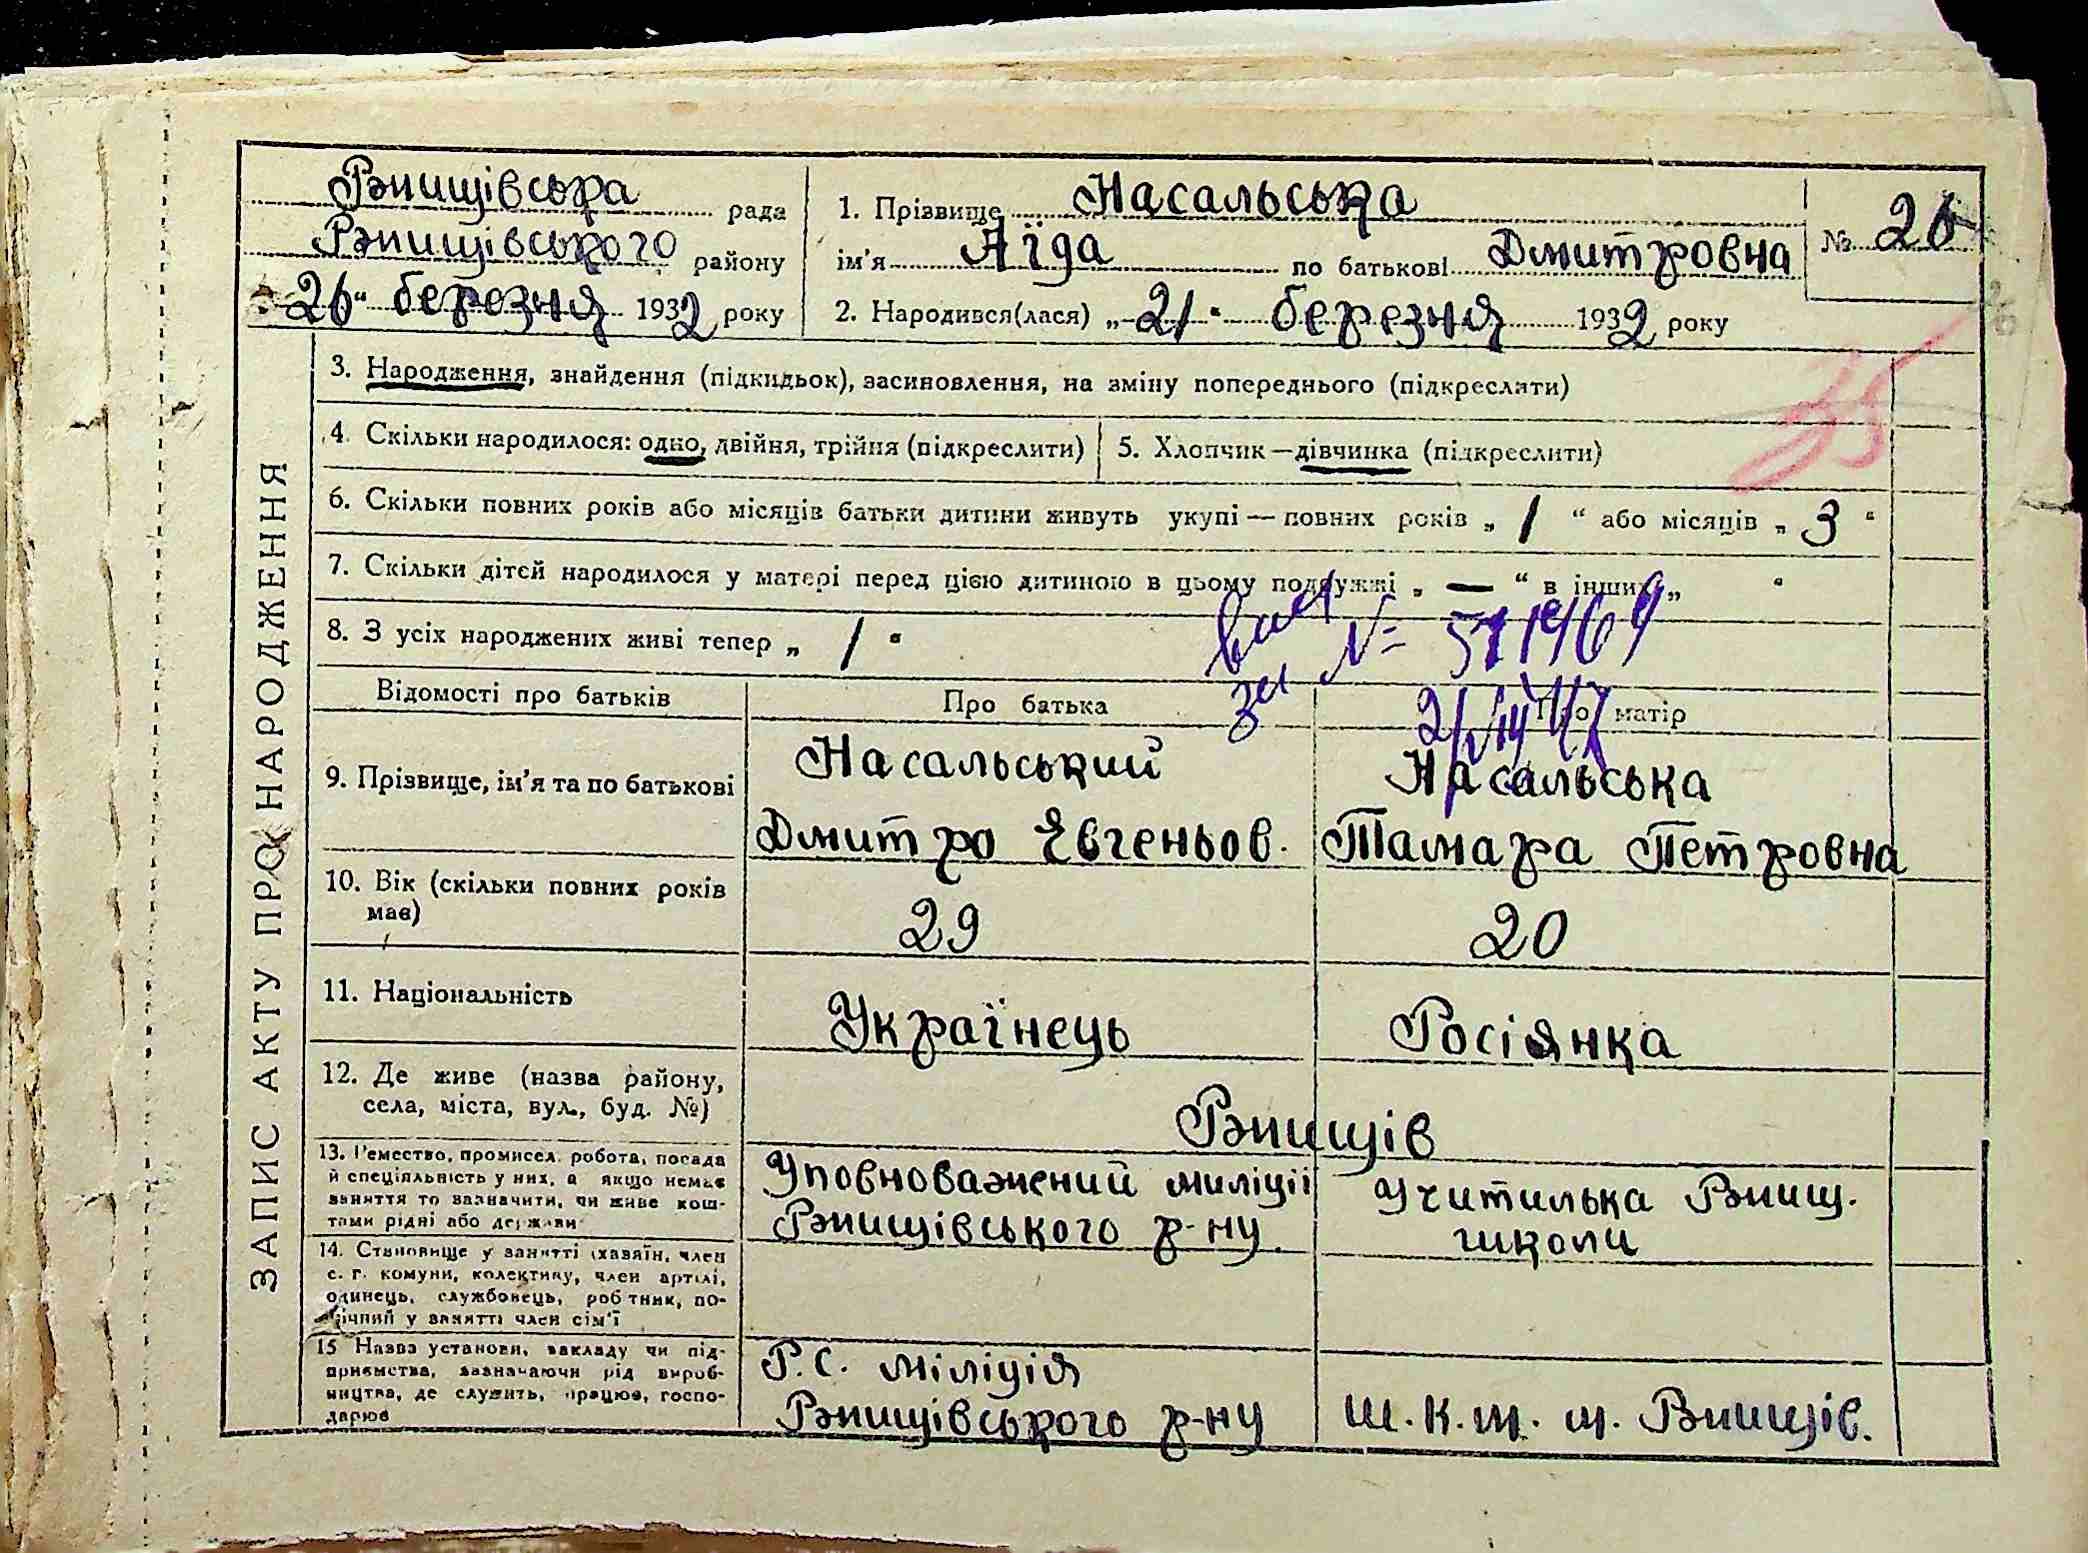 Ржищівська рада
Ржищівського району
„26“ березня 1932 року
1. Прізвище Насальська
ім'я Аїда по батькові Дмитровна
№ 26
2. Народився(лася) „21“ березня 1932 року
ЗАПИС АКТУ ПРО НАРОДЖЕННЯ
3. Народження, знайдення (підкидьок), засиновлення, на зміну попереднього (підкреслити)
4. Скільки народилося: одно, двійня, трійня (підкреслити)
5. Хлопчик — дівчинка (підкреслити)
6. Скільки повних років або місяців батьки дитини живуть укупі — повних років „ 1 “ або місяців „ 3 “
7. Скільки дітей народилося у матері перед цією дитиною в цьому подружжі „ — “ в інших „ “
8. З усіх народжених живі тепер „ 1 “
Відомості про батьків
Про батька
Про матір
9. Прізвище, ім'я та по батькові
Насальський
Дмитро Євгеньов.
Насальська
Тамара Петровна
10. Вік (скільки повних років
має)
29
20
11. Національність
Українець
Росіянка
12. Де живе (назва району,
села, міста, вул., буд. №)
Ржищів
13. Ремество, промисел, робота, посада
й спеціяльність у них, а якщо немає
заняття то зазначити, чи живе кош-
тами рідні або держави
Уповноважений миліції
Ржищівського р-ну
Учитилька Ржищ.
школи
14. Становище у занятті (хазяїн, член
с. г. комуни, колективу, член артілі,
одинець, службовець, робітник, по-
мічний у занятті член сім'ї
15 Назва установи, закладу чи під-
приємства, зазначаючи рід вироб-
ництва, де служить, працює, госпо-
дарює
Р.С. міліція
Ржищівського р-ну
Ш.К.М. м. Ржищів.